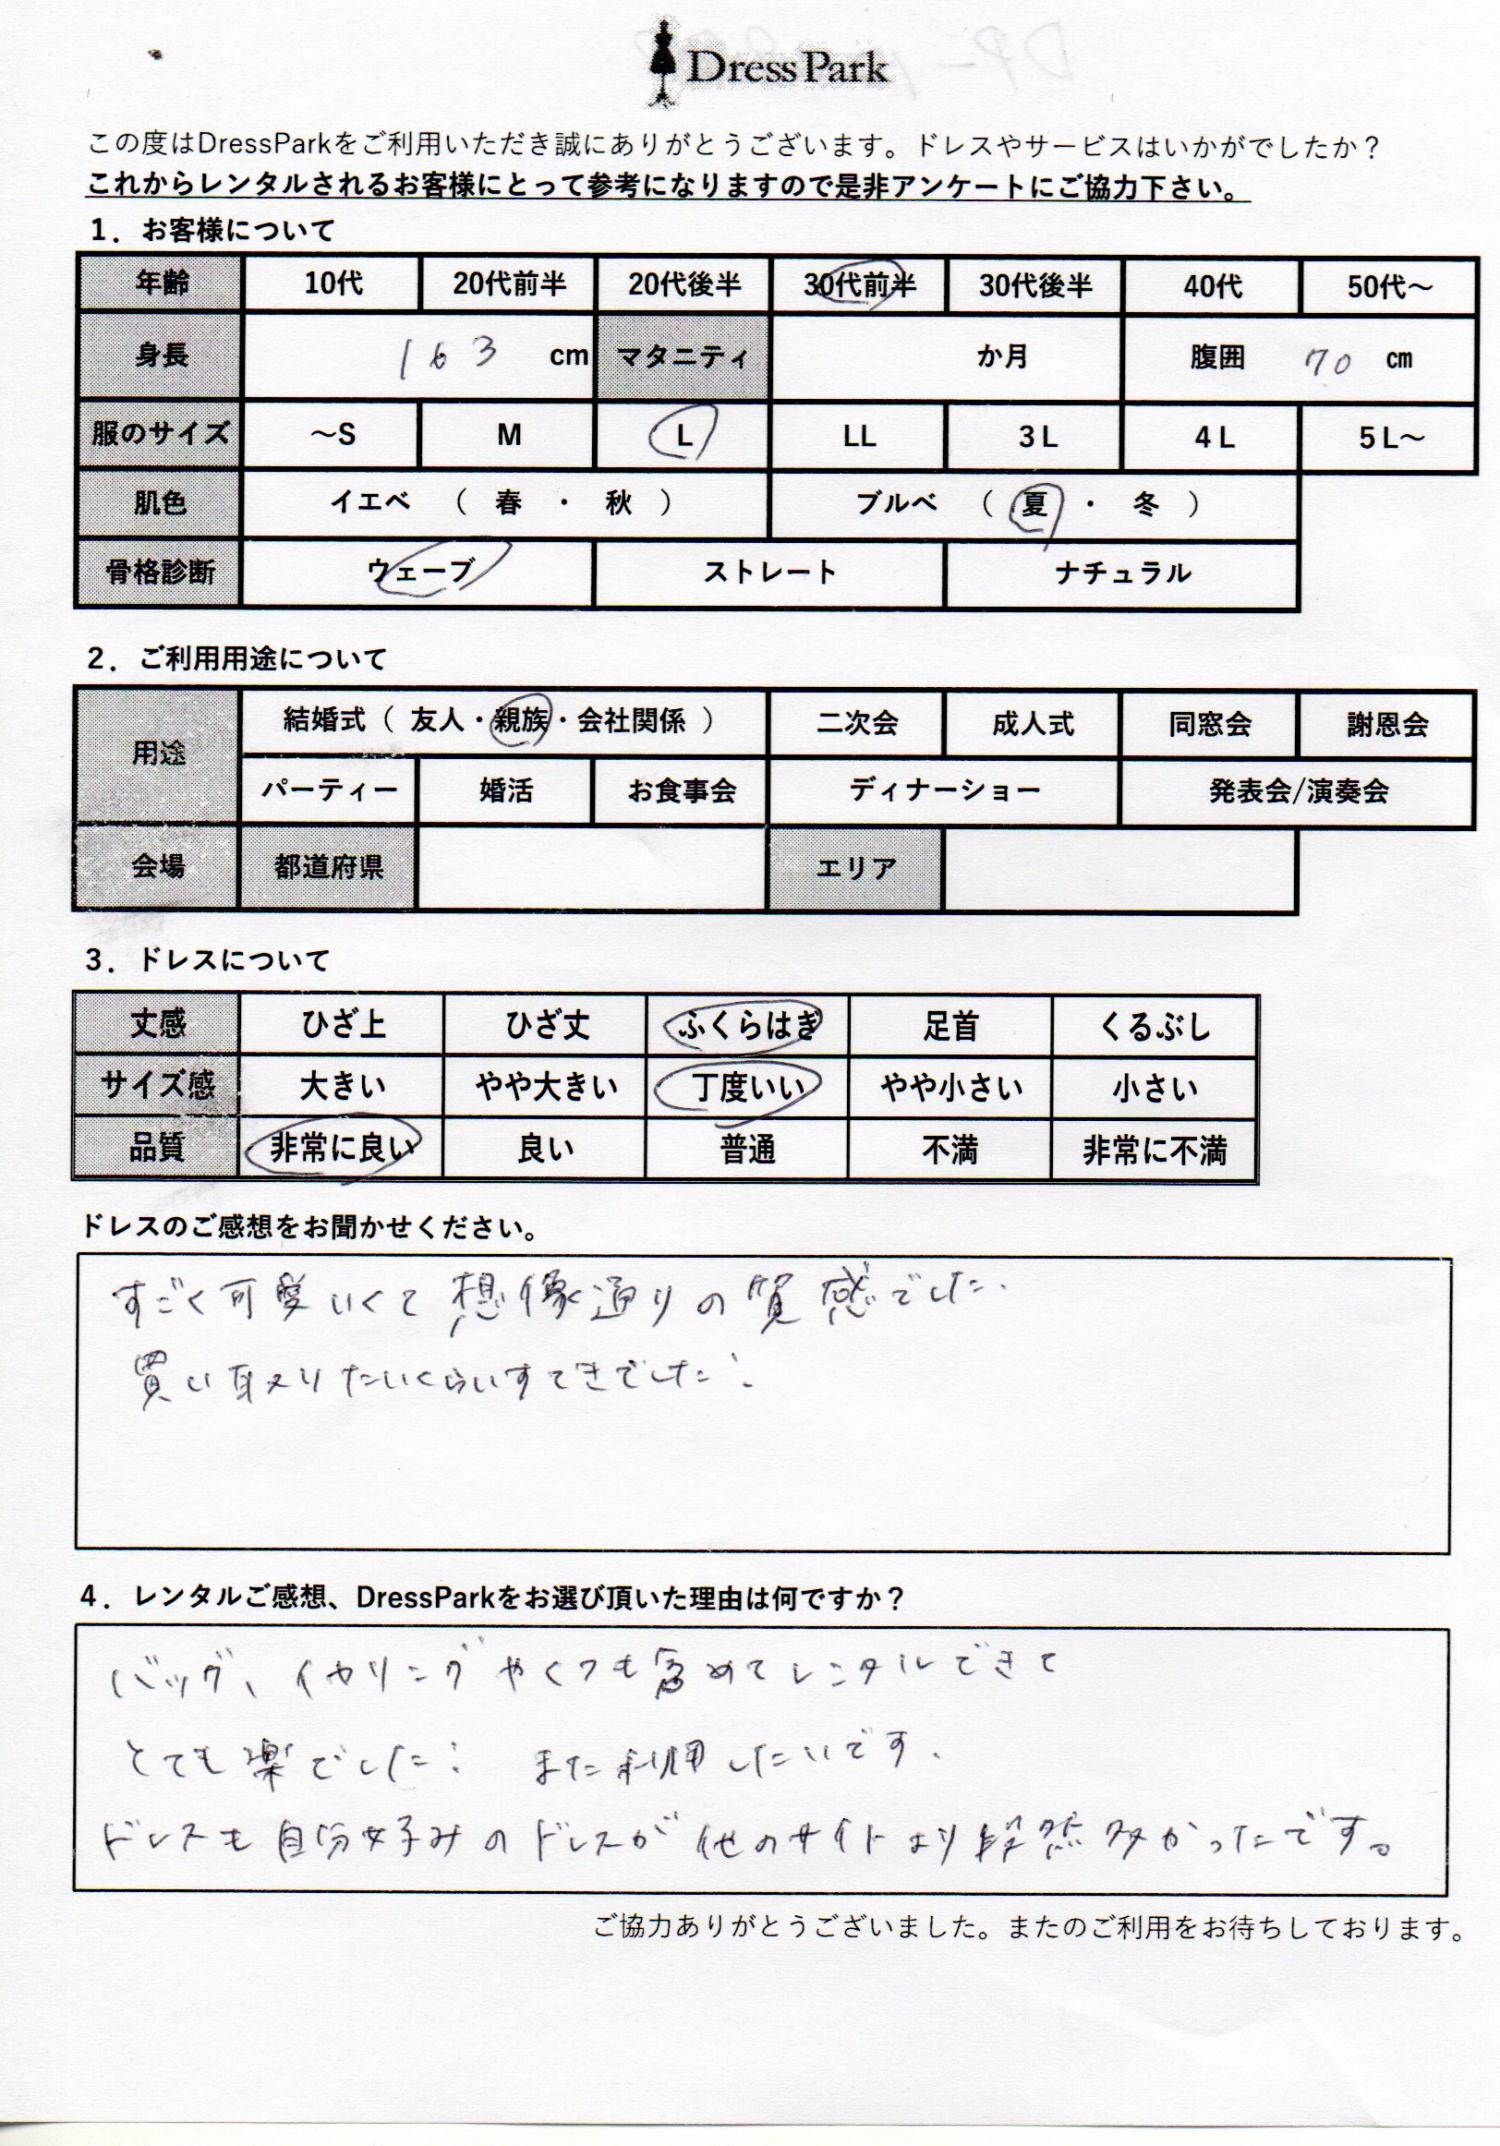 Dress Park
この度はDressParkをご利用いただき誠にありがとうございます。ドレスやサービスはいかがでしたか？
これからレンタルされるお客様にとって参考になりますので是非アンケートにご協力下さい。
1．お客様について
年齢 10代 20代前半 20代後半 30代前半 30代後半 40代 50代～
身長 163 cm マタニティ か月 腹囲 70 ㎝
服のサイズ ～S M L LL 3L 4L 5L～
肌色 イエベ （ 春 ・ 秋 ） ブルベ （ 夏 ・ 冬 ）
骨格診断 ウェーブ ストレート ナチュラル
2．ご利用用途について
用途 結婚式（ 友人・親族・会社関係 ） 二次会 成人式 同窓会 謝恩会
パーティー 婚活 お食事会 ディナーショー 発表会/演奏会
会場 都道府県 エリア
3．ドレスについて
丈感 ひざ上 ひざ丈 ふくらはぎ 足首 くるぶし
サイズ感 大きい やや大きい 丁度いい やや小さい 小さい
品質 非常に良い 良い 普通 不満 非常に不満
ドレスのご感想をお聞かせください。
すごく可愛いくて想像通りの質感でした.
買い取りたいくらいすてきでした.
4．レンタルご感想、DressParkをお選び頂いた理由は何ですか？
バッグ、イヤリングやくつも含めてレンタルできて
とても楽でした. また利用したいです.
ドレスも自分好みのドレスが他のサイトより段然多かったです。
ご協力ありがとうございました。またのご利用をお待ちしております。